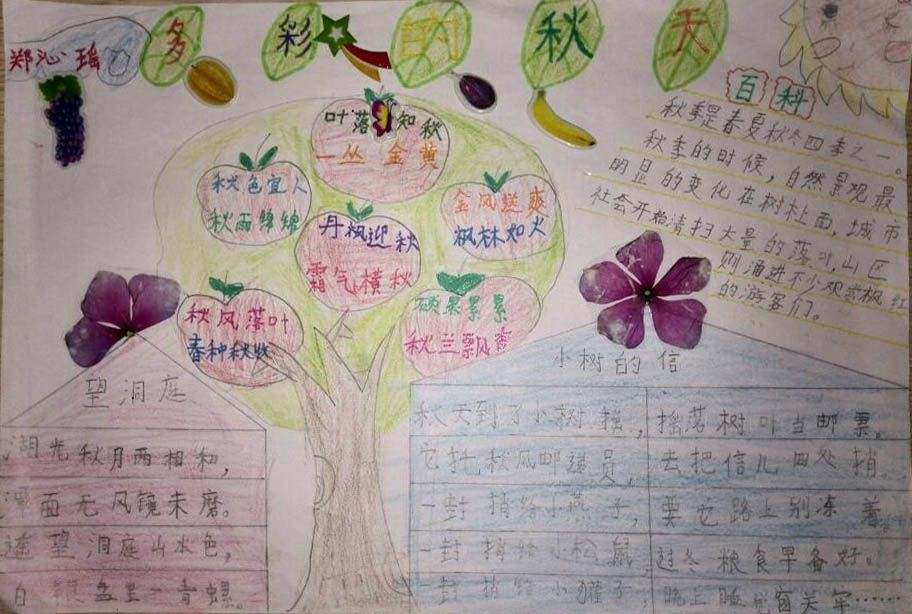 多彩的秋天
郑沁瑶
叶落知秋
一丛金黄
秋色宜人
秋雨绵绵
金风送爽
枫林如火
丹枫迎秋
霜气横秋
秋风落叶
春种秋收
硕果累累
秋兰飘香
百科
秋季是春夏秋冬四季之一。
秋季的时候，自然景观最
明显的变化在树林上面，城市
社会开始清扫大量的落叶，山区
则涌进不少观赏枫红
的游客们。
望洞庭
湖光秋月两相和，
潭面无风镜未磨。
遥望洞庭山水色，
白银盘里一青螺。
小树的信
秋天到了小树摇，摇落树叶当邮票。
它托秋风邮递员，去把信儿四处捎。
一封捎给小燕子，要它路上别冻着。
一封捎给小松鼠 过冬粮食早备好。
一封捎给小獾子，晚上睡 窗关牢……